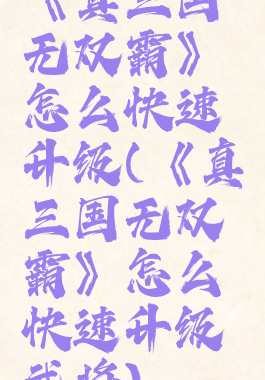 《真三国
无双霸》
怎么快速
升级(《真
三国无双
霸》怎么
快速升级
武将)